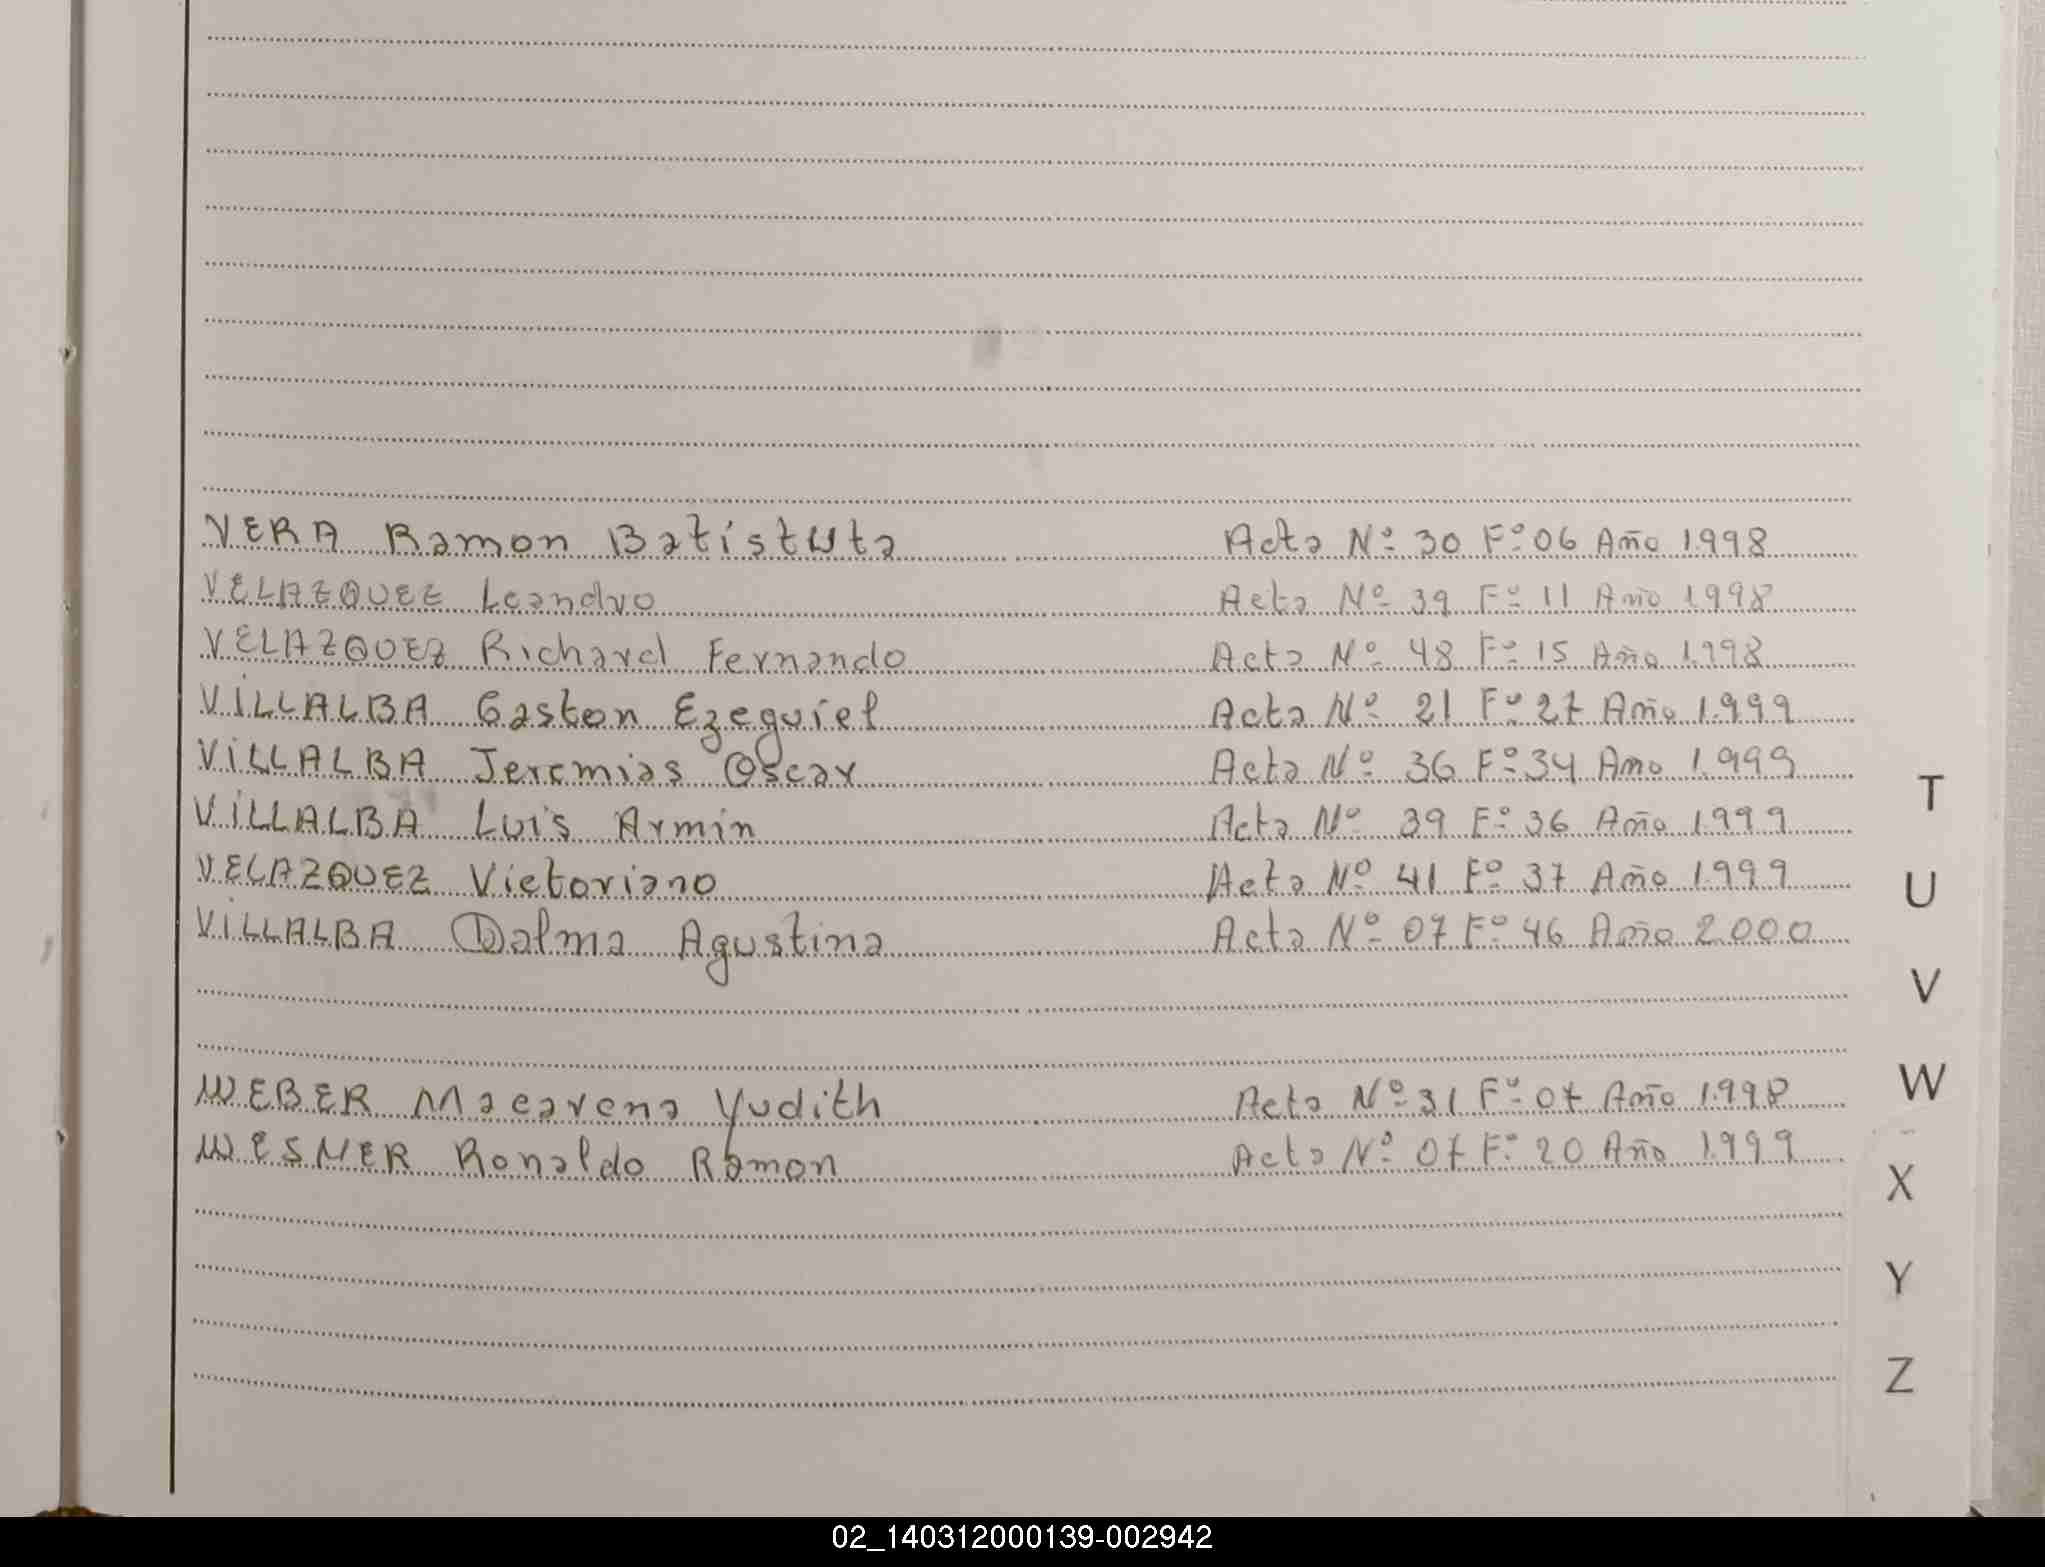 VERA Ramon Batistuta Acta Nº 30 Fº 06 Año 1998
VELAZQUEZ Leandro Acta Nº 39 Fº 11 Año 1998
VELAZQUEZ Richard Fernando Acta Nº 48 Fº 15 Año 1.998
VILLALBA Gaston Ezequiel Acta Nº 21 Fº 27 Año 1.999
VILLALBA Jeremias Oscar Acta Nº 36 Fº 34 Año 1.999
VILLALBA Luis Armin Acta Nº 39 Fº 36 Año 1.999
VELAZQUEZ Victoriano Acta Nº 41 Fº 37 Año 1.999
VILLALBA Dalma Agustina Acta Nº 07 Fº 46 Año 2.000
WEBER Macarena Yudith Acta Nº 31 Fº 07 Año 1.998
WESNER Ronaldo Ramon Acta Nº 07 Fº 20 Año 1.999
T
U
V
W
X
Y
Z
02_140312000139-002942